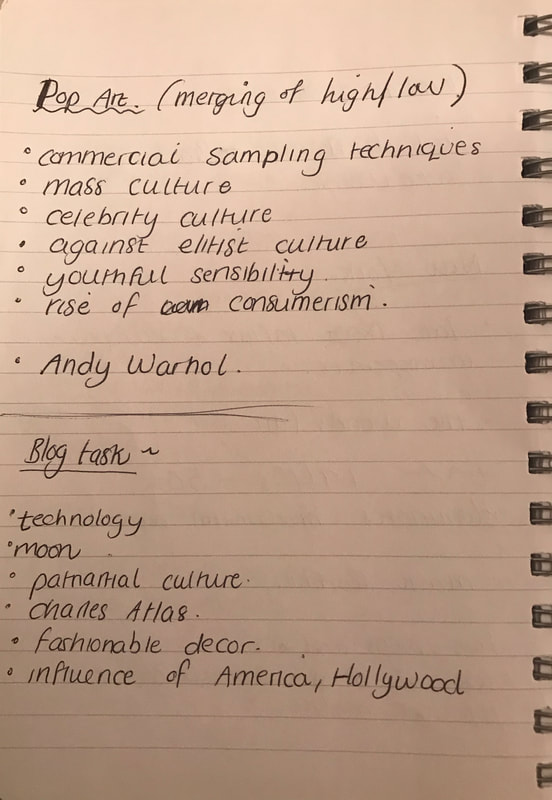 Pop Art. (merging of high/low)
• commercial sampling techniques
• mass culture
• celebrity culture
• against elitist culture
• youthful sensibility.
• rise of consumerism.
• Andy Warhol.
Blog task ~
• technology
• moon
• patriartial culture.
• Charles Atlas.
• fashionable decor.
• influence of America, Hollywood